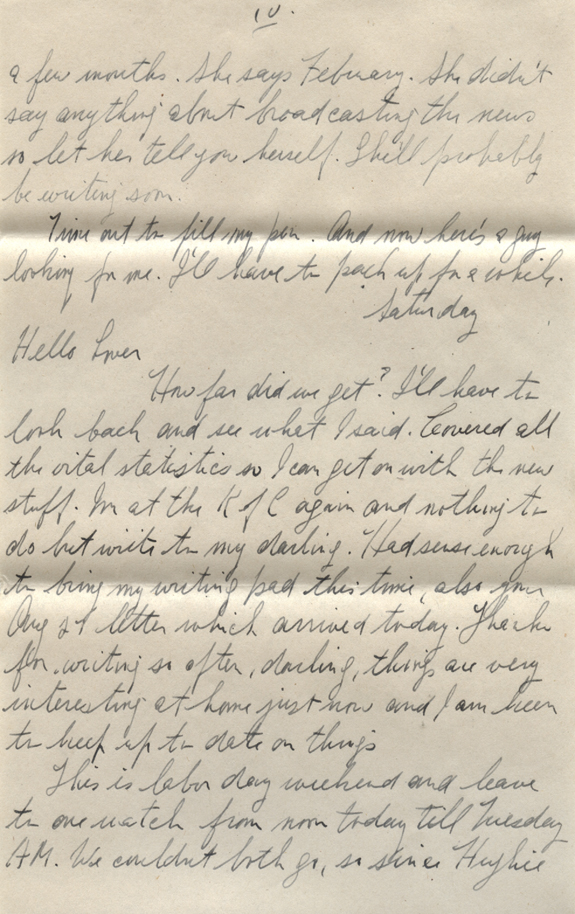 IV.
a few months. She says February. She didn't
say anything about broadcasting the news
so let her tell you herself. She'll probably
be writing soon.
Time out to fill my pen. And now here's a guy
looking for me. I'll have to pack up for a while.
Saturday
Hello Lover
How far did we get? I'll have to
look back and see what I said. Covered all
the vital statistics so I can get on with the new
stuff. Im at the K of C again and nothing to
do but write to my darling. Had sense enough
to bring my writing pad this time, also your
Aug 21 letter which arrived today. Thanks
for writing so often, darling, things are very
interesting at home just now and I am keen
to keep up to date on things
This is labor day weekend and leave
to one watch from noon today till Tuesday
AM. We couldn't both go, so since Hughie